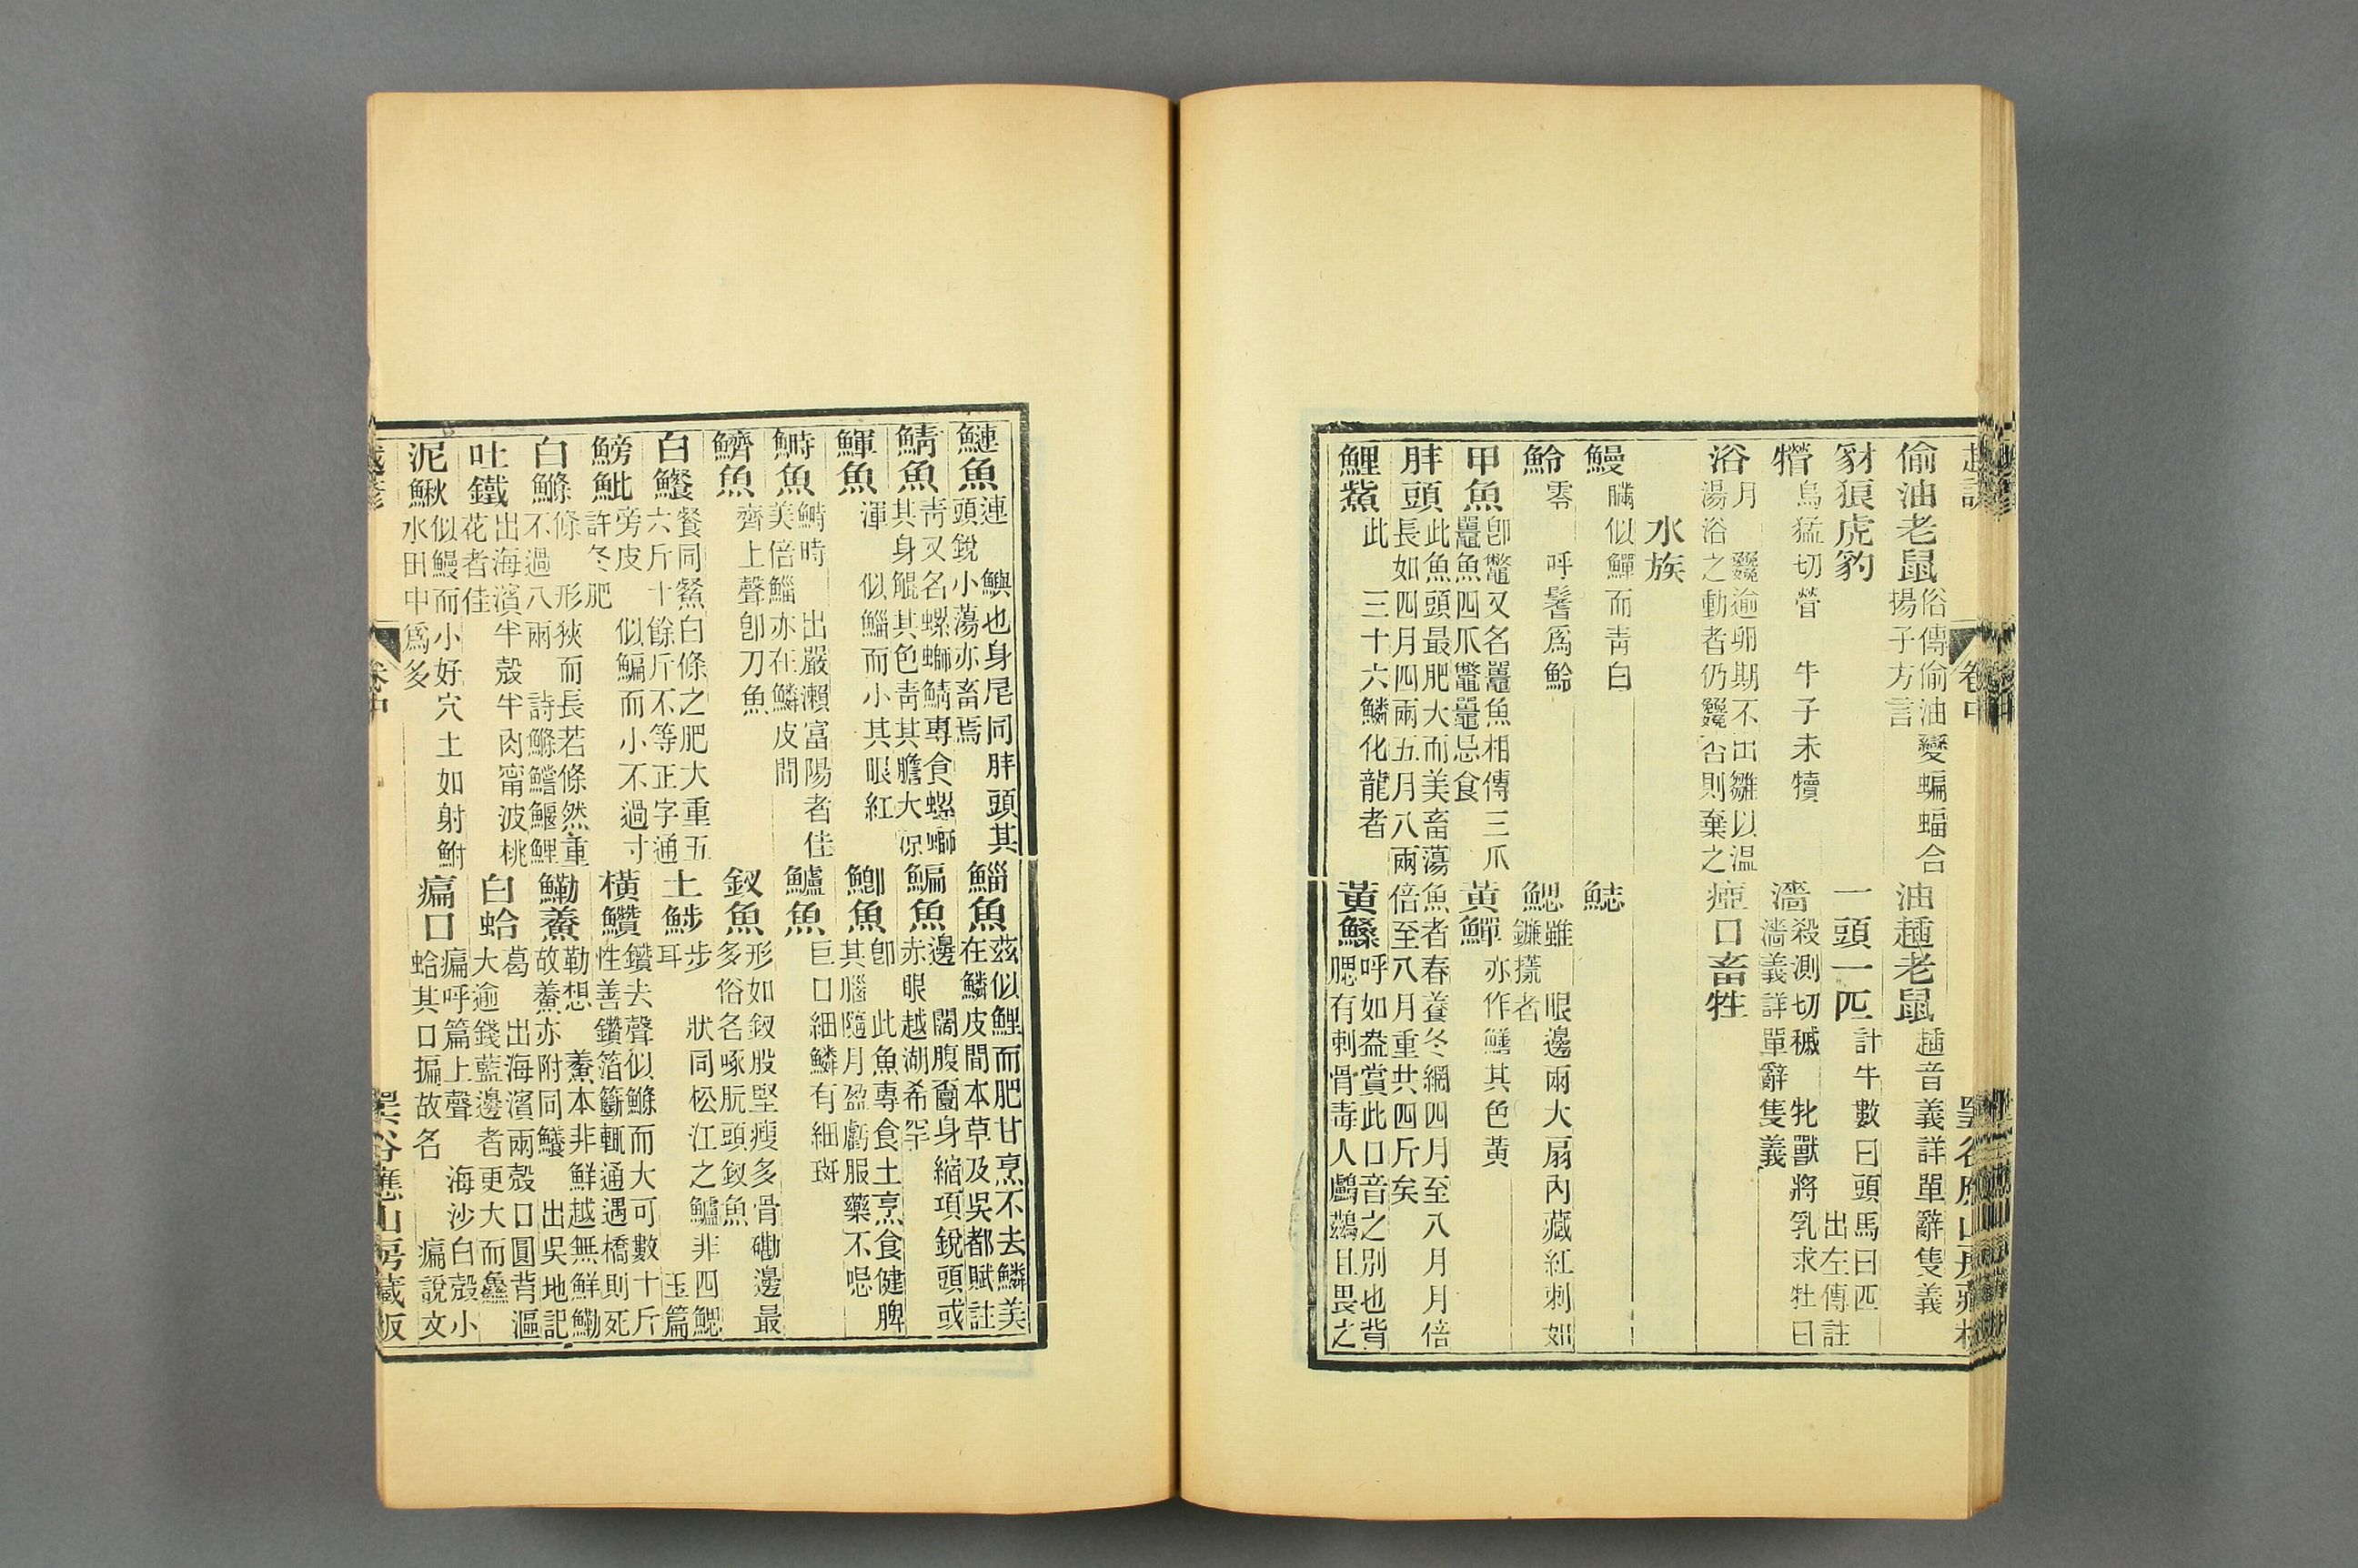 偷油老鼠
俗傳偷油變蝙蝠合
揚子方言
油䞬老鼠
䞬音義詳單辭隻義
豺狼虎豹
一頭一匹
計牛數曰頭馬曰匹
出左傳註
烏猛切 牛子未犢
濇
殺測切 牝獸將乳求牡曰
濇義詳單辭隻義
浴
月 逾卵期不出雛以温
湯浴之動者仍 否則棄之
瘂口畜牲
水族
鰻
瞞似鱓而青白
魿
零 呼鬐爲魿
鰓
雖 眼邊兩大扇內藏紅刺如
鐮搽者
甲魚
卽鼈又名鼉魚相傳三爪
鼉魚四爪鼈鼉忌食
黃鱓
亦作鱔其色黃
胖頭
此魚頭最肥大而美畜蕩魚者春養冬網四月至八月月倍
長如四月四兩五月八兩倍至八月重共四斤矣
鯉鮆
此三十六鱗化龍者
黃鰠
呼如盎賞此口音之別也背
腮有刺骨毒人鸕鷀且畏之
鰱魚
連 鱮也身尾同胖頭其
頭銳小蕩亦畜焉
鯔魚
茲似鯉而肥甘烹不去鱗美
在鱗皮間本草及吳都賦註
鯖魚
青又名螺螄鯖專食螺螄
其身鯤其色青其膽大凉
鯿魚
邊 闊腹匾身縮項銳頭或
赤眼越湖希罕
鯶魚
渾 似鯔而小其眼紅
鯽魚
卽 此魚專食土烹食健脾
其腦隨月盈虧服藥不忌
鰣魚
鰣時 出嚴瀨富陽者佳
美倍鯔亦在鱗皮間
鱸魚
巨口細鱗有細斑
鱭魚
齊上聲卽刀魚
釵魚
形如釵股堅瘦多骨磡邊最
多俗名啄朊頭釵魚
白䱹
餐同䱹白條之肥大重五
六斤十餘斤不等正字通
土䱛
步 狀同松江之鱸非四鰓
耳 玉篇
鰟魮
旁皮 似鯿而小不過寸
許冬肥
橫鑽
鑽去聲似鰷而大可數十斤
性善鑽箔籪輒通遇橋則死
白鰷
條 形狹而長若條然重
不過八兩 詩鰷鱨鰋鯉
鰳鯗
勒想 鯗本非鮮越無鮮鰳
故鯗亦附同鱶 出吳地記
吐鐵
出海濱半殼半肉甯波桃
花者佳
白蛤
葛 出海濱兩殼口圓背漚
大逾錢藍邊者更大而麤
泥鰍
似鰻而小好穴土如射鮒
水田中爲多
瘺口
瘺呼篇上聲 海沙白殼小
蛤其口揙故名 瘺說文